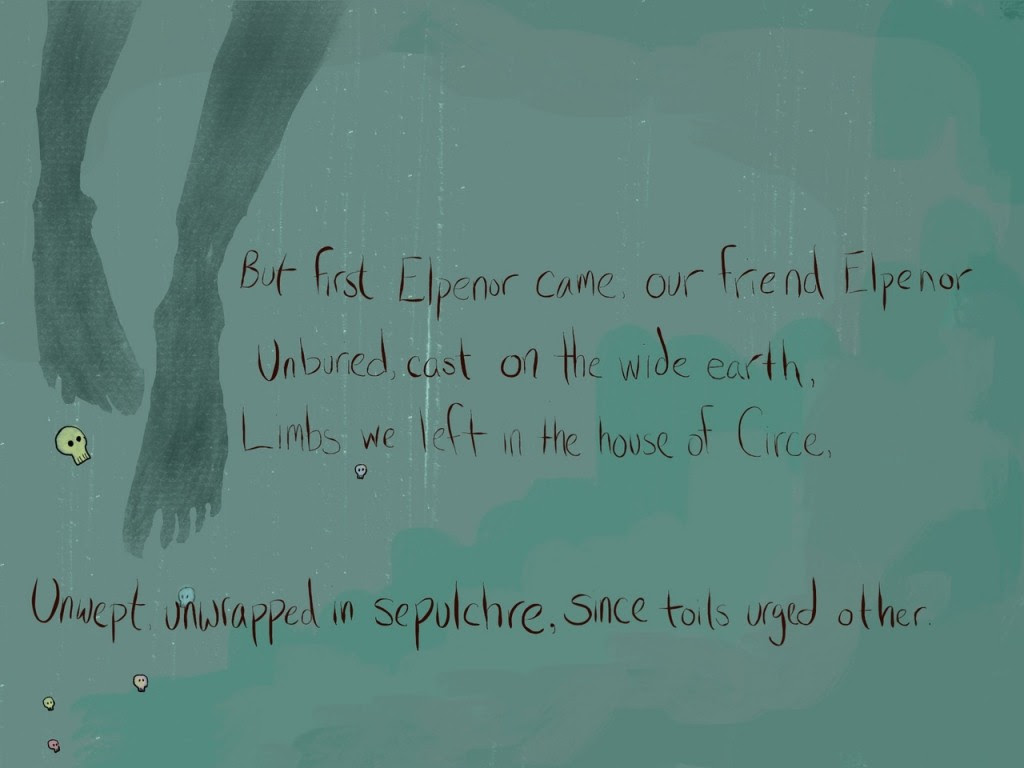 But first Elpenor came, our friend Elpenor
Unburied, cast on the wide earth,
Limbs we left in the house of Circe,
Unwept, unwrapped in sepulchre, since toils urged other.